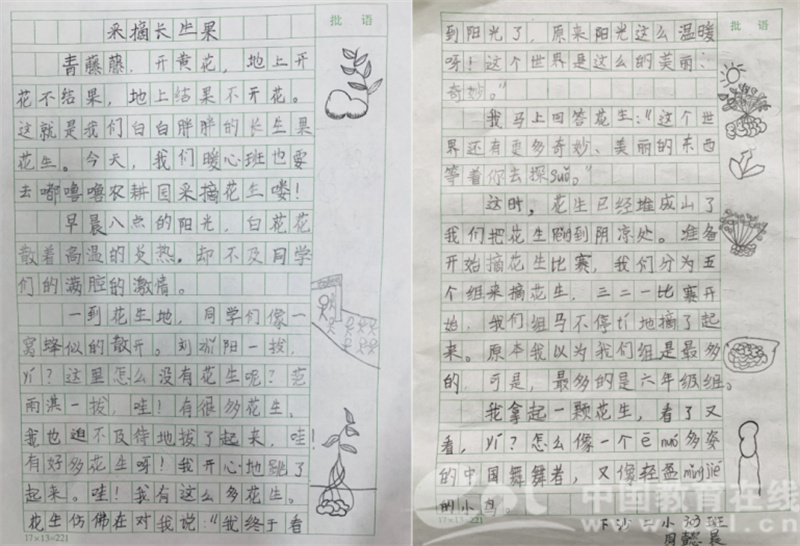 批 语
采摘长生果
青藤藤，开黄花，地上开
花不结果，地上结果不开花。
这就是我们白白胖胖的长生果
花生。今天，我们暖心班也要
去嘟噜噜农耕园采摘花生喽！
早晨八点的阳光，白花花
散着高温的炙热。却不及同学
们的满腔的激情。
一到花生地，同学们像一
窝蜂似的散开。刘 阳一拔，
yí？这里怎么没有花生呢？范
雨淇一拔，哇！有很多花生。
我也迫不及待地拔了起来，哇！
有好多花生呀！我开心地跳了
起来。哇！我有这么多花生。
花生仿佛在对我说：“我终于看
17×13=221
批 语
到阳光了，原来阳光这么温暖
呀！这个世界是这么的美丽、
奇妙。”
我马上回答花生：“这个世
界还有更多奇妙、美丽的东西
等着你去探suǒ。”
这时，花生已经堆成山了
我们把花生 到阴凉处。准备
开始摘花生比赛，我们分为五
个组来摘花生，三二一比赛开
始，我们组马不停tí地摘了起
来。原本我以为我们组是最多
的，可是，最多的是六年级组。
我拿起一颗花生，看了又
看，yí？怎么像一个ē nuó多姿
的中国舞舞者，又像轻盈mǐnjié
的小鸟。
17×13=221
下沙二小 班
周懿晨
中国教育在线